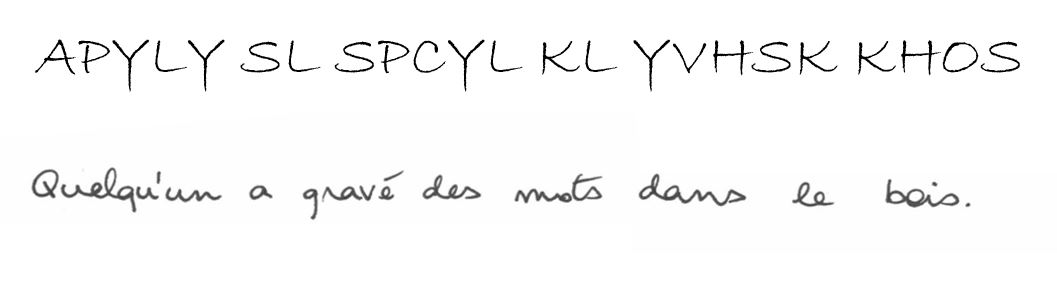 APYLY SL SPCYL KL YVHSK KHOS
Quelqu'un a gravé des mots dans le bois.